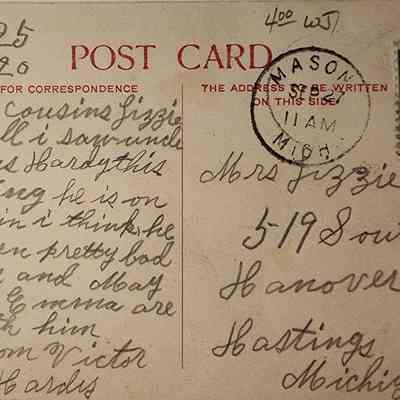 25
20
4.00 WJ
POST CARD
FOR CORRESPONDENCE
THE ADDRESS TO BE WRITTEN
ON THIS SIDE
MASON
SEP
11 AM
MICH.
Cousins Lizzie
ll i saw uncle
s Hardy this
ng he is on
in i think he
en pretty bad
and May
Emma are
th him
om Victor
Hardis
Mrs Lizzie
519 Sou
Hanover
Hastings
Michig